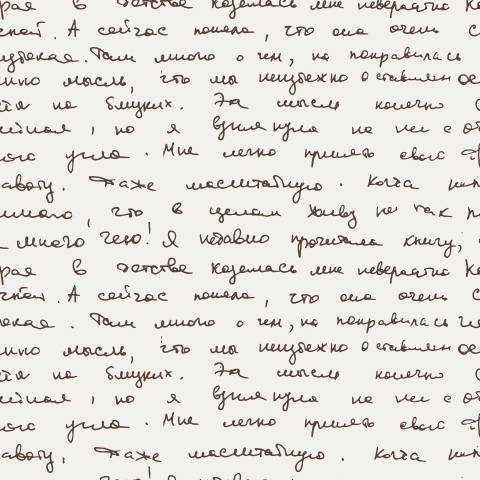 рая в детстве казалась мне невероятно
. А сейчас поняла, что она очень
. Там много о чем, но понравилась
мысль, что мы неизбежно оставляем
на близких. Эта мысль конечно
, но я взглянула на нее с
угла. Мне легко принять
. Даже масштабную. Когда
, что в целом живу не так
много чего! Я недавно прочитала книгу,
рая в детстве казалась мне невероятно
. А сейчас поняла, что она очень с
. Там много о чем, но понравилась
мысль, что мы неизбежно оставляем
на близких. Эта мысль конечно
, но я взглянула на нее с
угла. Мне легко принять
. Даже масштабную. Когда